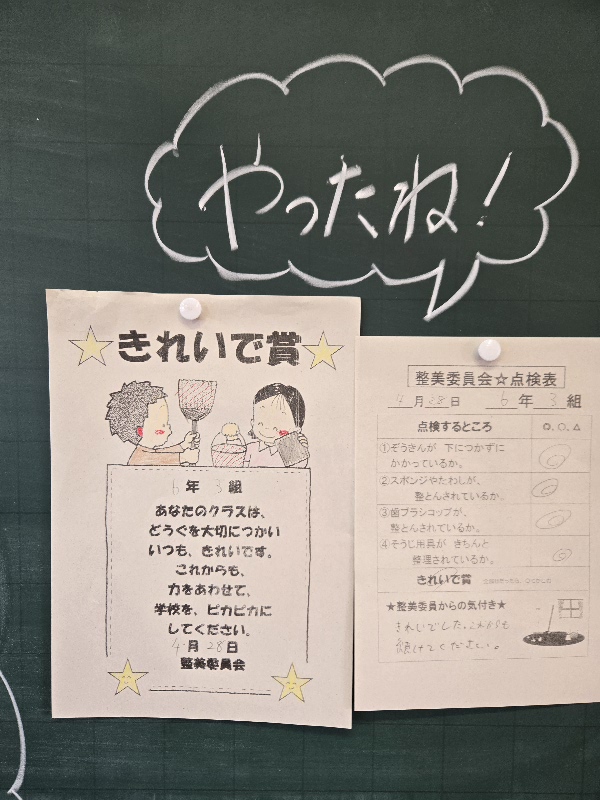 やったね!
きれいで賞
6年 3組
あなたのクラスは、
どうぐを大切につかい
いつも、きれいです。
これからも、
力をあわせて、
学校を、ピカピカに
してください。
4月28日
整美委員会
整美委員会☆点検表
4月28日 6年 3組
点検するところ ◎、○、△
①ぞうきんが 下につかずに
かかっているか。 ◎
②スポンジやたわしが、
整とんされているか。 ◎
③歯ブラシコップが、
整とんされているか。 ◎
④そうじ用具が きちんと
整理されているか。 ◎
きれいで賞
★整美委員からの気付き★
きれいでした。これからも
続けてください。